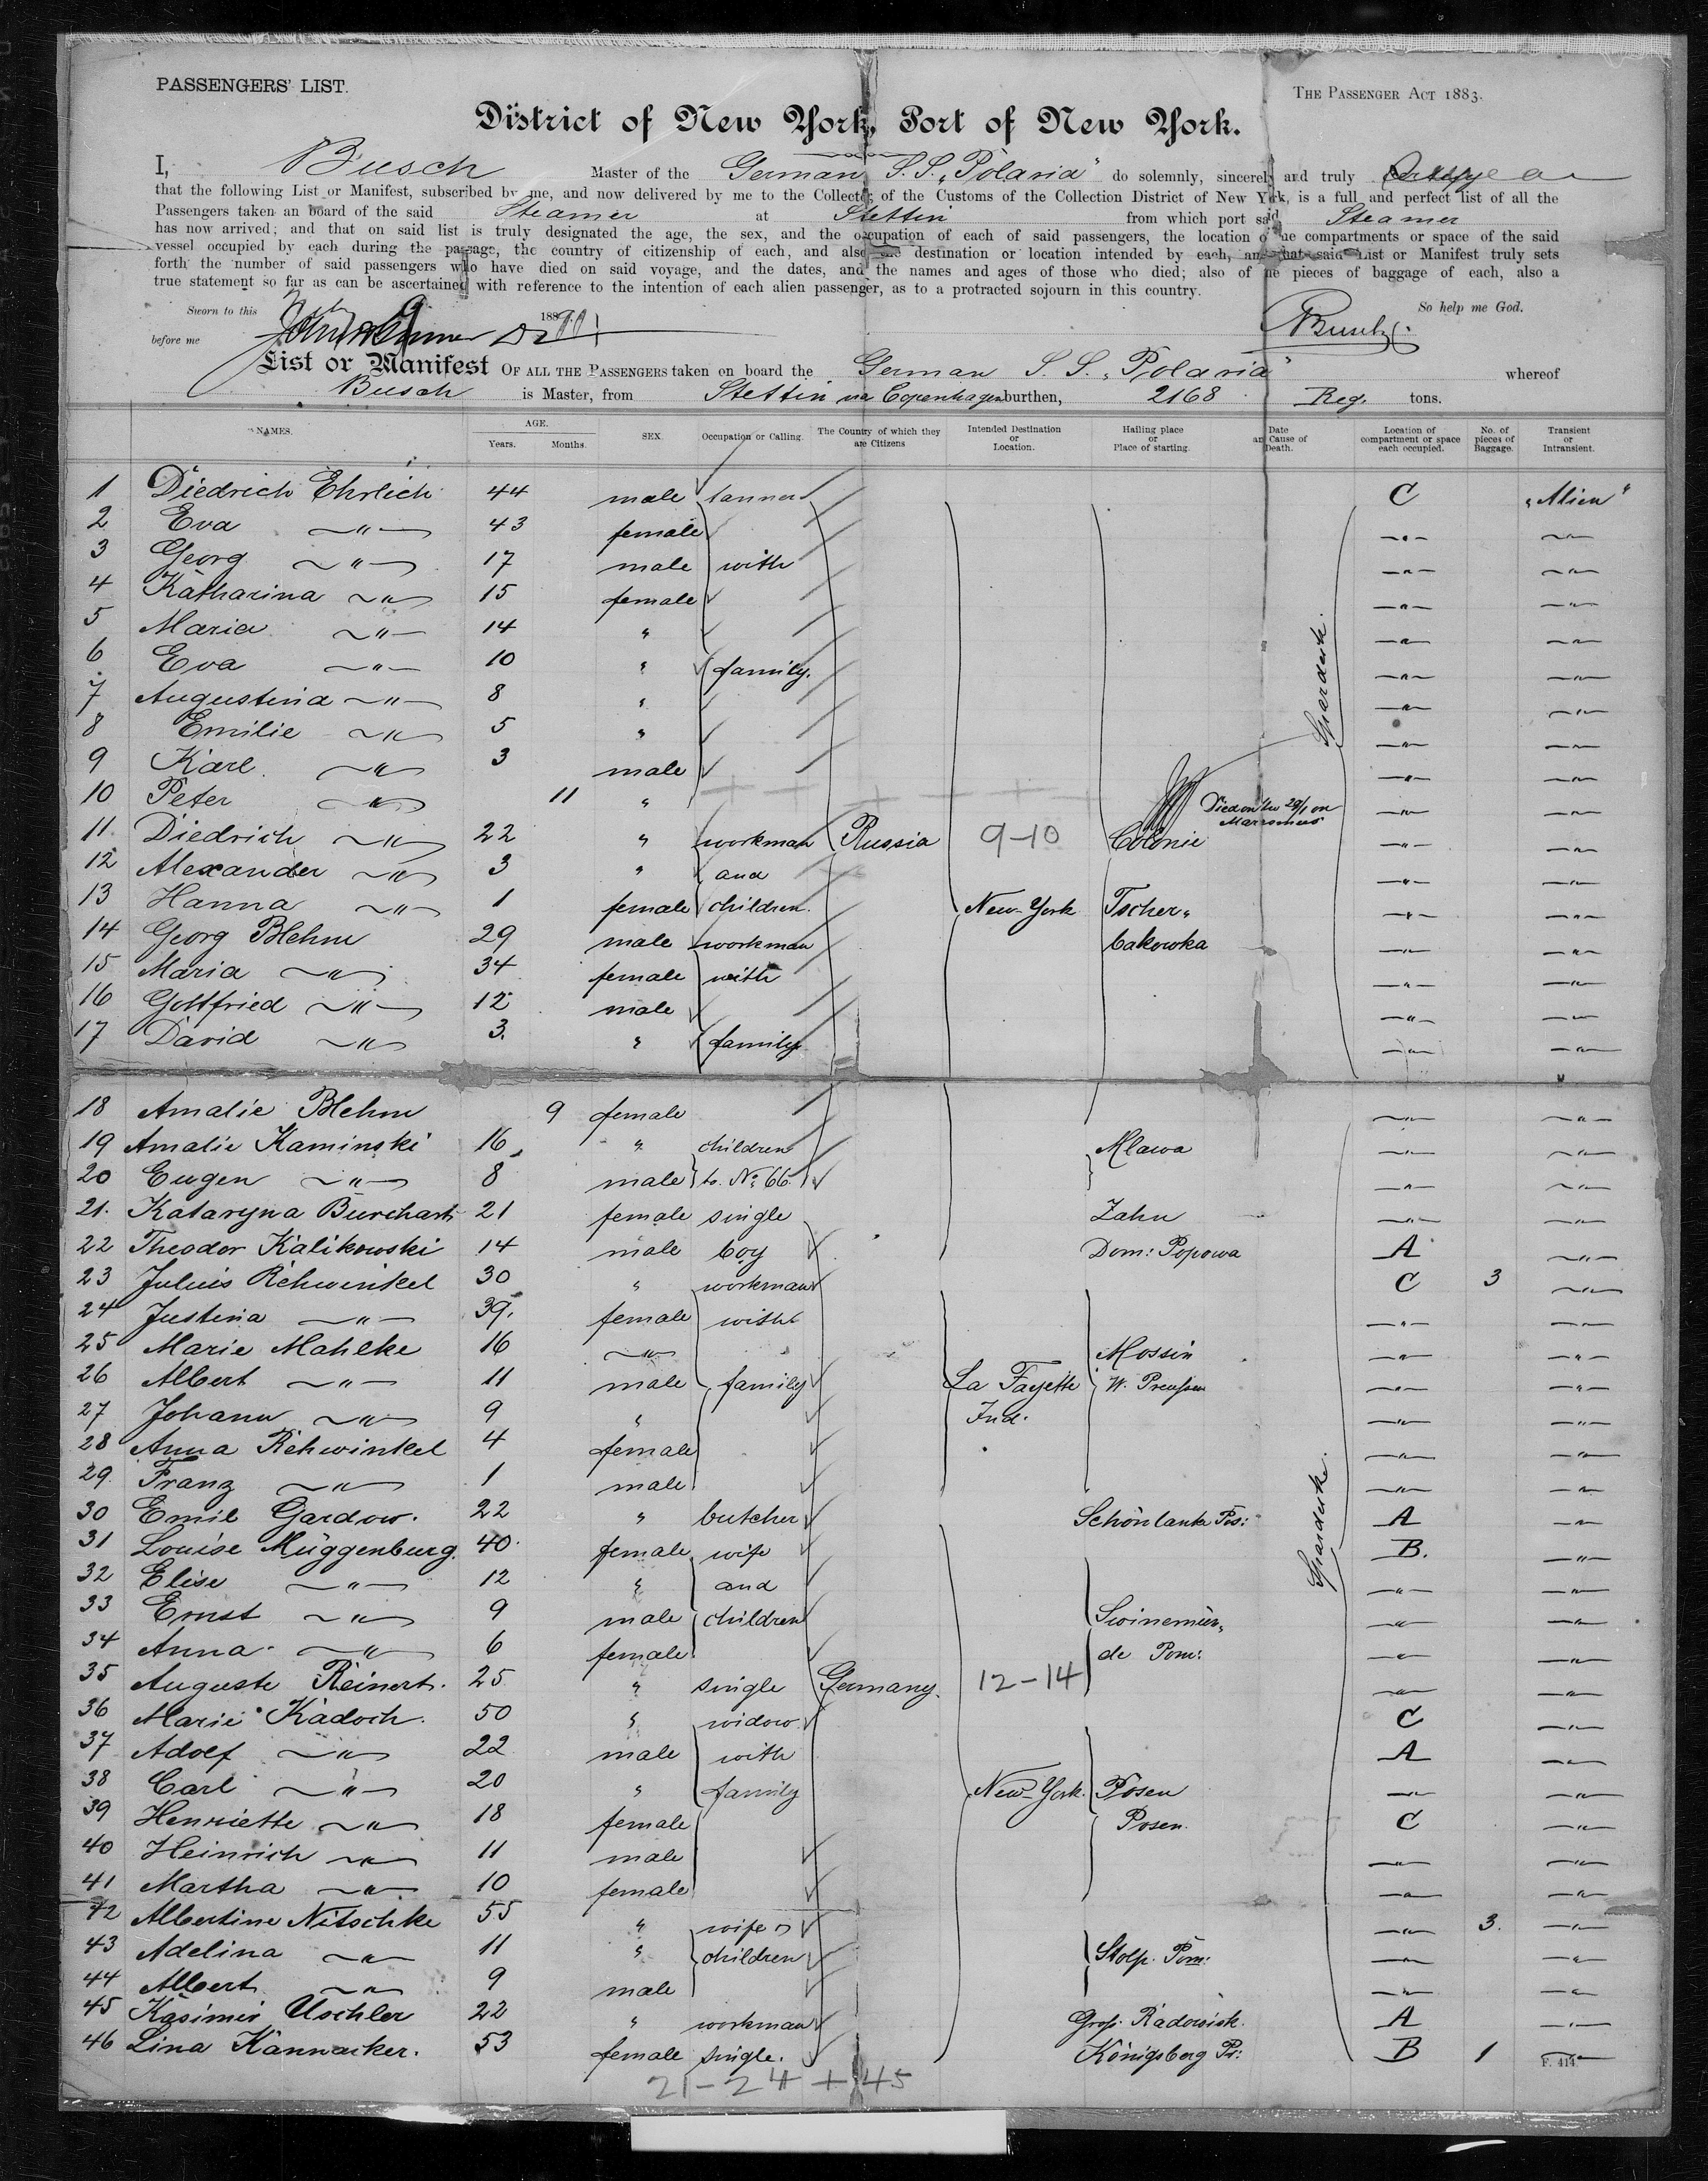 PASSENGERS' LIST.
THE PASSENGER ACT 1883.
District of New York, Port of New York.
I, Busch Master of the German S.S. „Polaria" do solemnly, sincerely and truly
that the following List or Manifest, subscribed by me, and now delivered by me to the Collector of the Customs of the Collection District of New York, is a full and perfect list of all the
Passengers taken an board of the said Steamer at Stettin from which port said Steamer
has now arrived; and that on said list is truly designated the age, the sex, and the occupation of each of said passengers, the location of the compartments or space of the said
vessel occupied by each during the passage, the country of citizenship of each, and also the destination or location intended by each, and that said List or Manifest truly sets
forth the number of said passengers who have died on said voyage, and the dates, and the names and ages of those who died; also of the pieces of baggage of each, also a
true statement so far as can be ascertained with reference to the intention of each alien passenger, as to a protracted sojourn in this country.
Sworn to this 188
So help me God.
before me
Busch
List or Manifest OF ALL THE PASSENGERS taken on board the German S. S. „Polaria" whereof
Busch is Master, from Stettin via Copenhagen burthen, 2168 Reg. tons.
NAMES. AGE. Years. Months. SEX. Occupation or Calling. The Country of which they are Citizens Intended Destination or Location. Hailing place or Place of starting. Date and Cause of Death. Location of compartment or space each occupied. No. of pieces of Baggage. Transient or Intransient.
1 Diedrich Ehrlich 44 male tanner C „Alien"
2 Eva —"— 43 female —"— —"—
3 Georg —"— 17 male with —"— —"—
4 Katharina —"— 15 female —"— —"—
5 Maria —"— 14 " —"— —"—
6 Eva —"— 10 " family. —"— —"—
7 Augustina —"— 8 " —"— —"—
8 Emilie —"— 5 " —"— —"—
9 Karl —"— 3 male —"— —"—
10 Peter —"— 11 " Died on the 29/1 on Marasmus —"— —"—
11 Diedrich —"— 22 " workman Russia 9-10 Colonie —"— —"—
12 Alexander —"— 3 " and —"— —"—
13 Hanna —"— 1 female children. New-York Tscher- —"— —"—
14 Georg Blehm 29 male workman bakowka —"— —"—
15 Maria —"— 34 female with —"— —"—
16 Gottfried —"— 12 male —"— —"—
17 David —"— 3. " family —"— —"—
18 Amalie Blehm 9 female —"— —"—
19 Amalie Kaminski 16 " children Mlawa —"— —"—
20 Eugen —"— 8 male to No 66. —"— —"—
21. Kataryna Burchart 21 female single Zahn —"— —"—
22 Theodor Kalikowski 14 male boy Dom: Popowa A —"—
23 Julius Rehwinkel 30 " workman C 3 —"—
24 Justina —"— 39. female with —"— —"—
25 Marie Mahlke 16 —"— Mossin —"— —"—
26 Albert —"— 11 male family La Fayette W. Preußen —"— —"—
27 Johann —"— 9 " Ind. —"— —"—
28 Anna Rehwinkel 4 female —"— —"—
29. Franz —"— 1 male —"— —"—
30 Emil Gardow. 22 " butcher Schönlanke Pos: A —"—
31 Louise Müggenburg. 40. female wife B. —"—
32 Elise —"— 12 " and —"— —"—
33 Ernst —"— 9 male children Swinemün- —"— —"—
34 Anna —"— 6 female de Pom: —"— —"—
35 Auguste Reinert. 25 " single Germany. 12-14 —"— —"—
36 Marie Kadoch. 50 " widow C —"—
37 Adolf —"— 22 male with A —"—
38 Carl —"— 20 " family New-York. Posen —"— —"—
39 Henriette —"— 18 female Posen C —"—
40 Heinrich —"— 11 male —"— —"—
41 Martha —"— 10 female —"— —"—
42 Albertine Nitschke 55 " wife —"— 3. —"—
43 Adelina —"— 11 " children Stolp. Pom: —"— —"—
44 Albert —"— 9 male —"— —"—
45 Kasimir 22 " workman Groß. A —"—
46 Lina Kannacker. 53 female single. Königsberg Pr: B 1 —"—
F. 414.
21-24 + 45